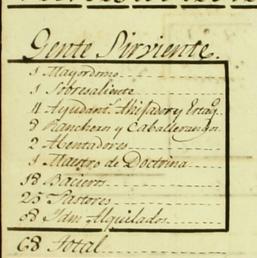 Gente Sirviente.
1 Mayordomo
1 Sobresaliente
4 Ayudant.^s Ahijador y
3 Rancheros y Caballerangos
2 Aventadores
1 Maestro de Doctrina
18 Bacieros
25 Pastores
Idm Alquilados
68 Total